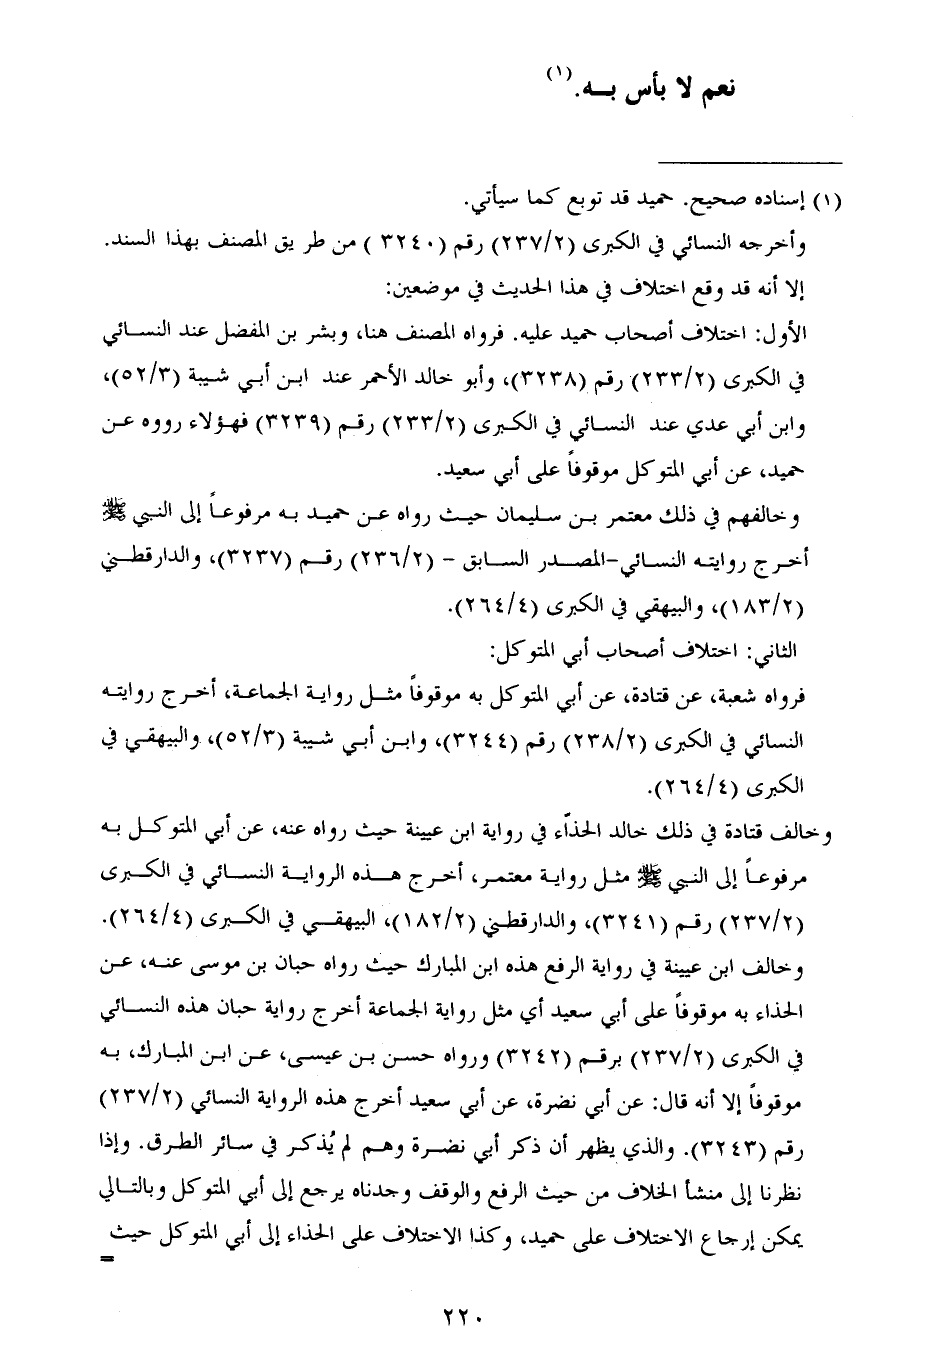 نعم لا بأس به.(١)
(١) إسناده صحيح. حميد قد توبع كما سيأتي.
وأخرجه النسائي في الكبرى (٢٣٧/٢) رقم (٣٢٤٠) من طريق المصنف بهذا السند.
إلا أنه قد وقع اختلاف في هذا الحديث في موضعين:
الأول: اختلاف أصحاب حميد عليه. فرواه المصنف هنا، وبشر بن المفضل عند النسائي
في الكبرى (٢٣٣/٢) رقم (٣٢٣٨)، وأبو خالد الأحمر عند ابن أبي شيبة (٥٢/٣)،
وابن أبي عدي عند النسائي في الكبرى (٢٣٣/٢) رقم (٣٢٣٩) فهؤلاء رووه عن
حميد، عن أبي المتوكل موقوفاً على أبي سعيد.
وخالفهم في ذلك معتمر بن سليمان حيث رواه عن حميد به مرفوعاً إلى النبي ﷺ
أخرج روايته النسائي-المصدر السابق - (٢٣٦/٢) رقم (٣٢٣٧)، والدارقطني
(١٨٣/٢)، والبيهقي في الكبرى (٢٦٤/٤).
الثاني: اختلاف أصحاب أبي المتوكل:
فرواه شعبة، عن قتادة، عن أبي المتوكل به موقوفاً مثل رواية الجماعة، أخرج روايته
النسائي في الكبرى (٢٣٨/٢) رقم (٣٢٤٤)، وابن أبي شيبة (٥٢/٣)، والبيهقي في
الكبرى (٢٦٤/٤).
وخالف قتادة في ذلك خالد الحذّاء في رواية ابن عيينة حيث رواه عنه، عن أبي المتوكل به
مرفوعاً إلى النبي ﷺ مثل رواية معتمر، أخرج هذه الرواية النسائي في الكبرى
(٢٣٧/٢) رقم (٣٢٤١)، والدارقطني (١٨٢/٢)، البيهقي في الكبرى (٢٦٤/٤).
وخالف ابن عيينة في رواية الرفع هذه ابن المبارك حيث رواه حبان بن موسى عنه، عن
الحذاء به موقوفاً على أبي سعيد أي مثل رواية الجماعة أخرج رواية حبان هذه النسائي
في الكبرى (٢٣٧/٢) برقم (٣٢٤٢) ورواه حسن بن عيسى، عن ابن المبارك، به
موقوفاً إلا أنه قال: عن أبي نضرة، عن أبي سعيد أخرج هذه الرواية النسائي (٢٣٧/٢)
رقم (٣٢٤٣). والذي يظهر أن ذكر أبي نضرة وهم لم يُذكر في سائر الطرق. وإذا
نظرنا إلى منشأ الخلاف من حيث الرفع والوقف وجدناه يرجع إلى أبي المتوكل وبالتالي
يمكن إرجاع الاختلاف على حميد، وكذا الاختلاف على الحذاء إلى أبي المتوكل حيث
=
٢٢٠